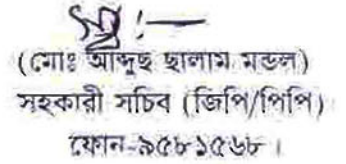 স্বাঃ :—
(মোঃ আব্দুছ ছালাম মন্ডল)
সহকারী সচিব (জিপি/পিপি)
ফোন-৯৫৮১৫৬৮।